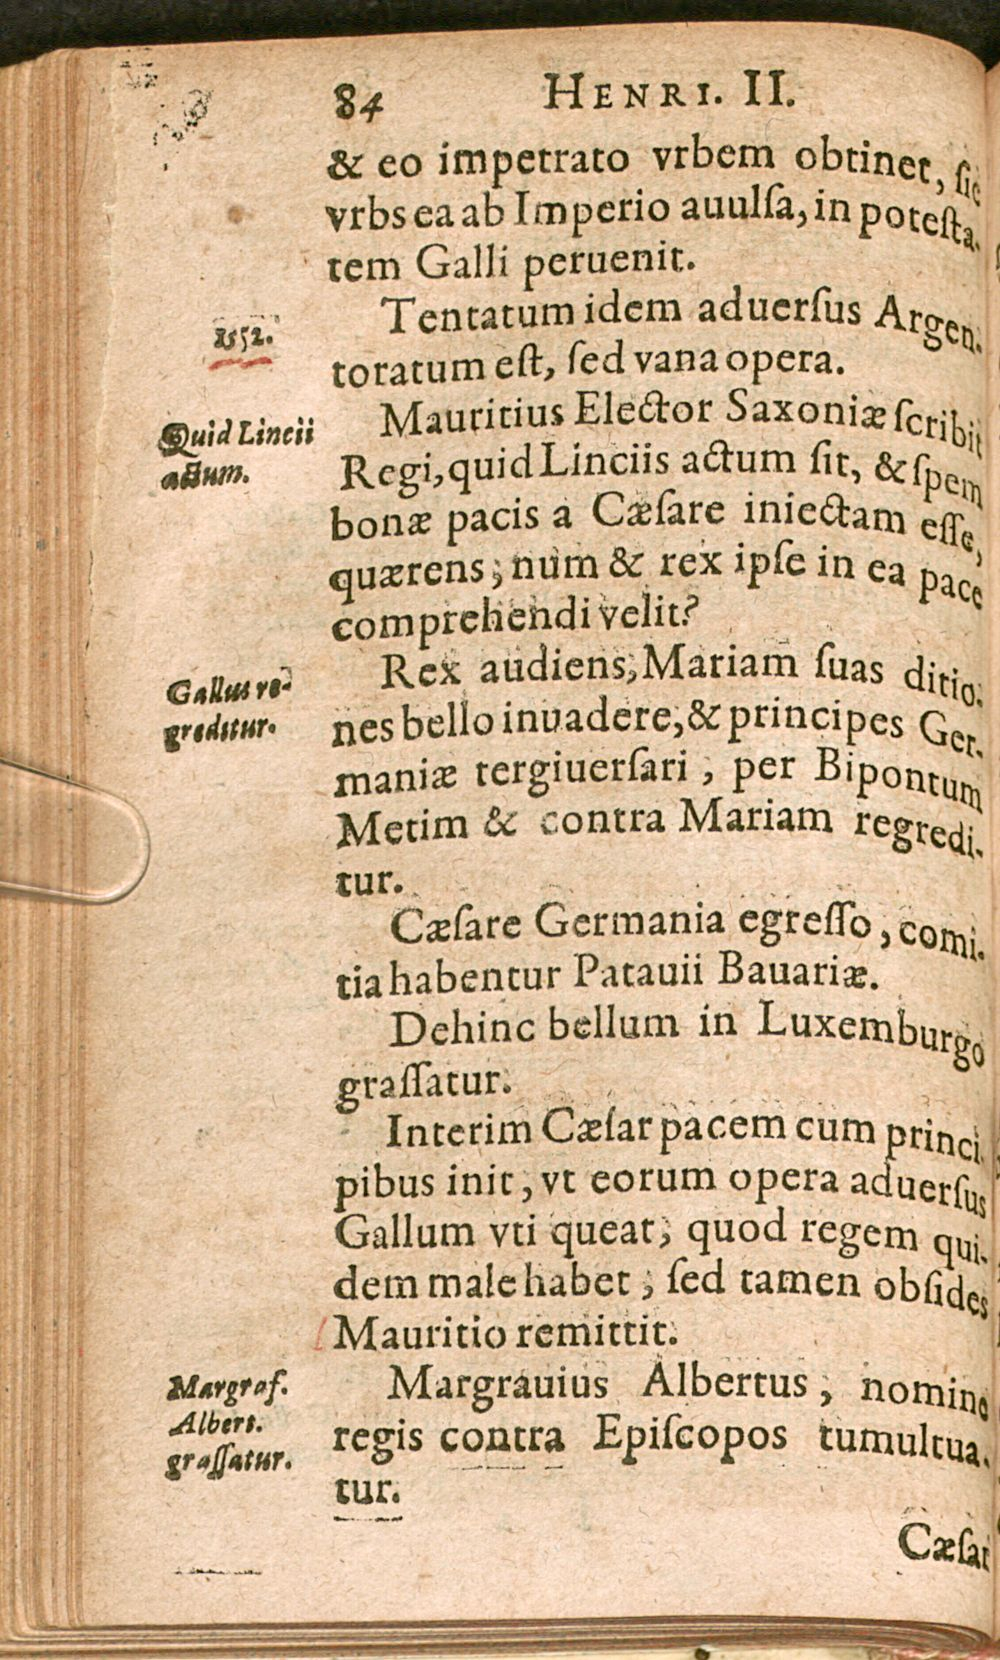 84 HENRI. II.
& eo impetrato vrbem obtinet, ſic
vrbs ea ab Imperio auulſa, in poteſta-
tem Galli peruenit.
1552.
Tentatum idem aduerſus Argen-
toratum eſt, ſed vana opera.
Quid Lincii
actum.
Mauritius Elector Saxoniæ ſcribit
Regi, quid Linciis actum ſit, & ſpem
bonæ pacis a Cæſare iniectam eſſe,
quærens; num & rex ipſe in ea pace
comprehendi velit?
Gallus re-
greditur.
Rex audiens, Mariam ſuas ditio-
nes bello inuadere, & principes Ger-
maniæ tergiuerſari, per Bipontum
Metim & contra Mariam regredi-
tur.
Cæſare Germania egreſſo, comi-
tia habentur Patauii Bauariæ.
Dehinc bellum in Luxemburgo
graſſatur.
Interim Cæſar pacem cum princi-
pibus init, vt eorum opera aduerſus
Gallum vti queat; quod regem qui-
dem male habet; ſed tamen obſides
Mauritio remittit.
Margraf.
Albert.
graſſatur.
Margrauius Albertus, nomine
regis contra Epiſcopos tumultua-
tur.
Cæſar